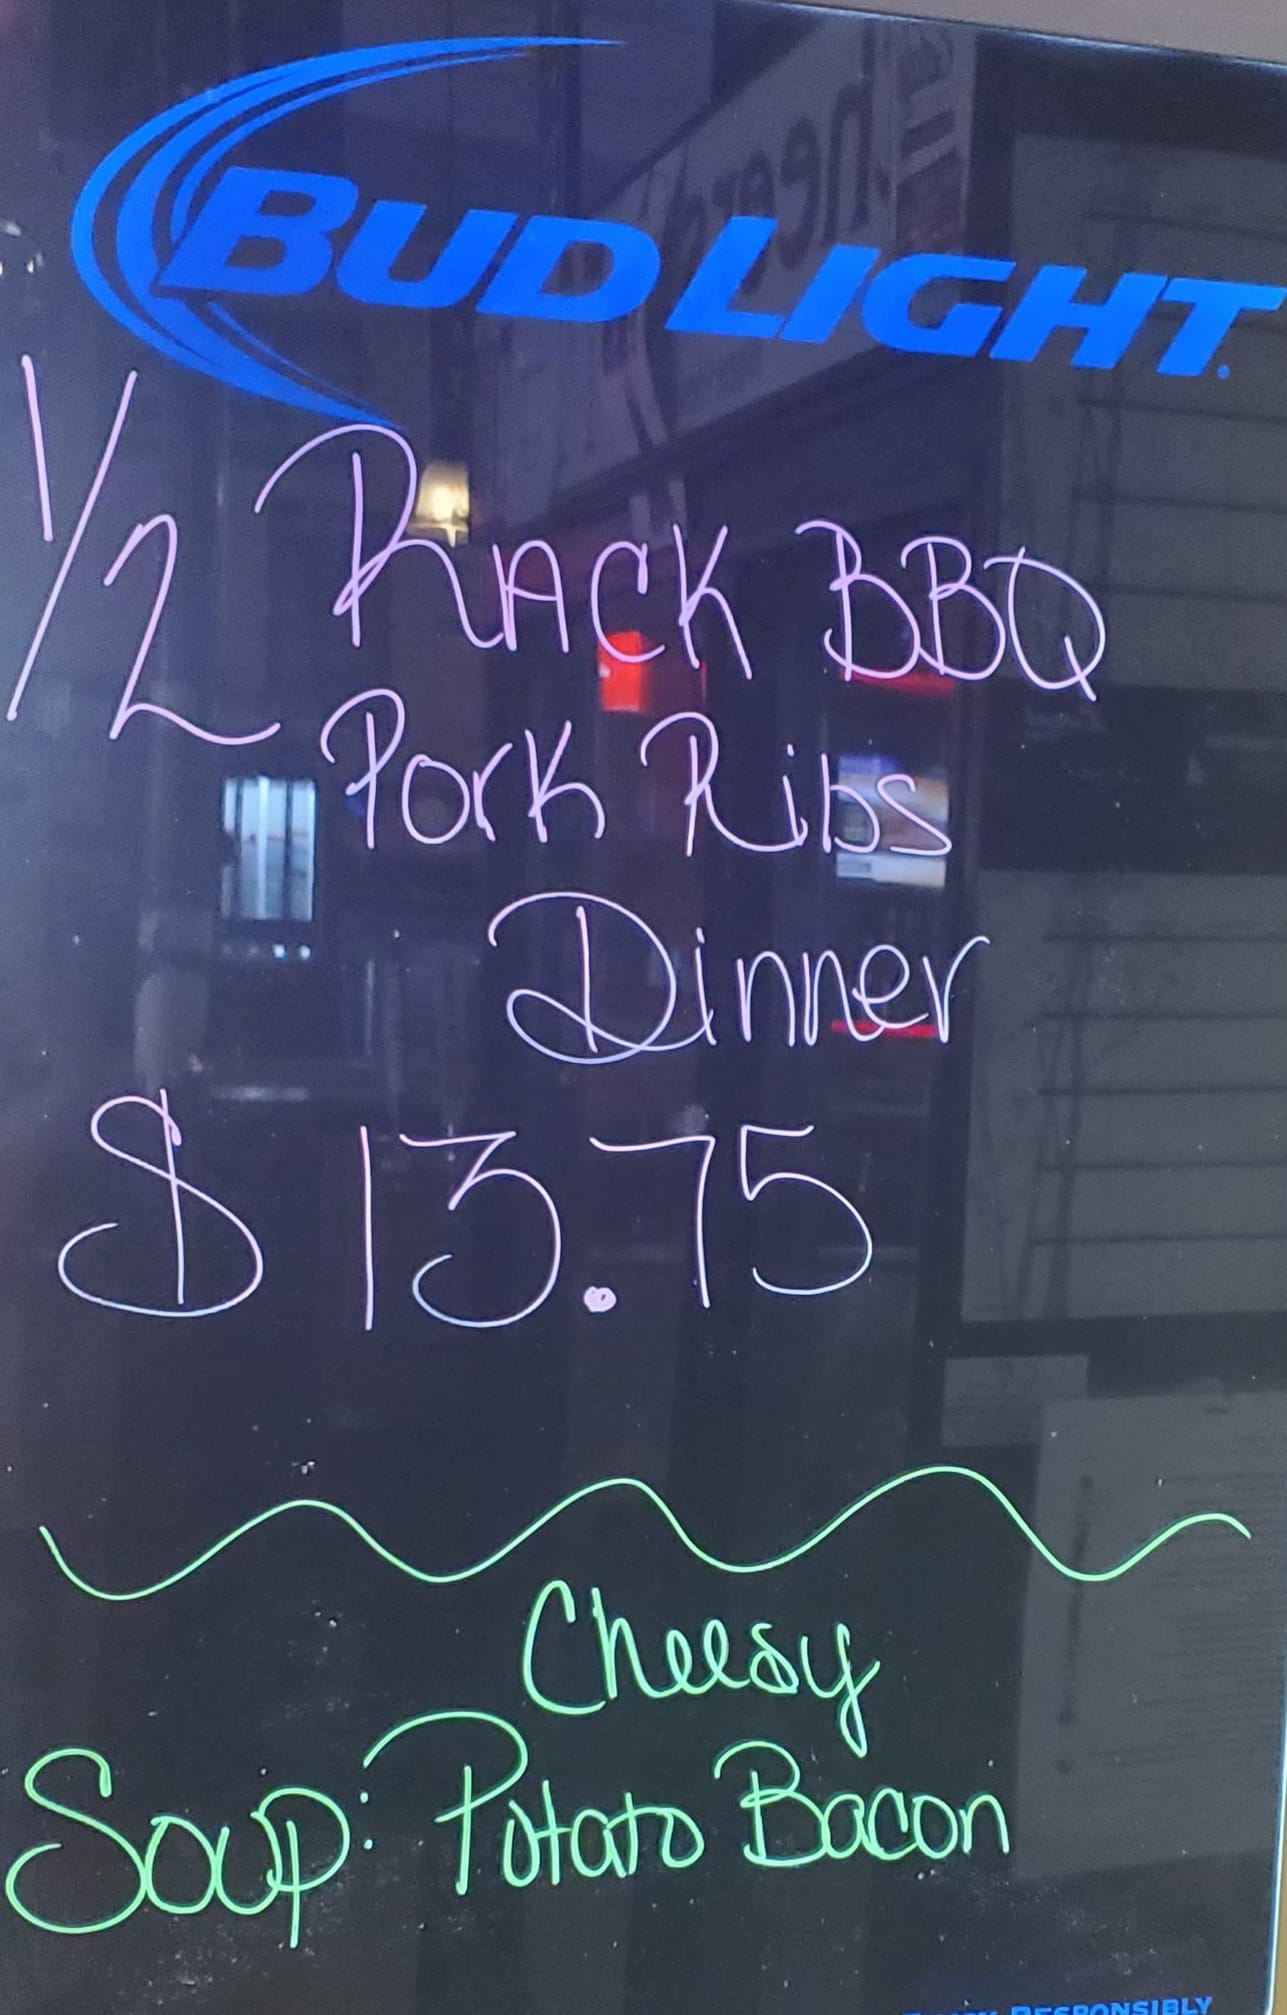 BUD LIGHT
1/2 RACK BBQ
Pork Ribs
Dinner
$13.75
Cheesy
Soup: Potato Bacon
RESPONSIBLY